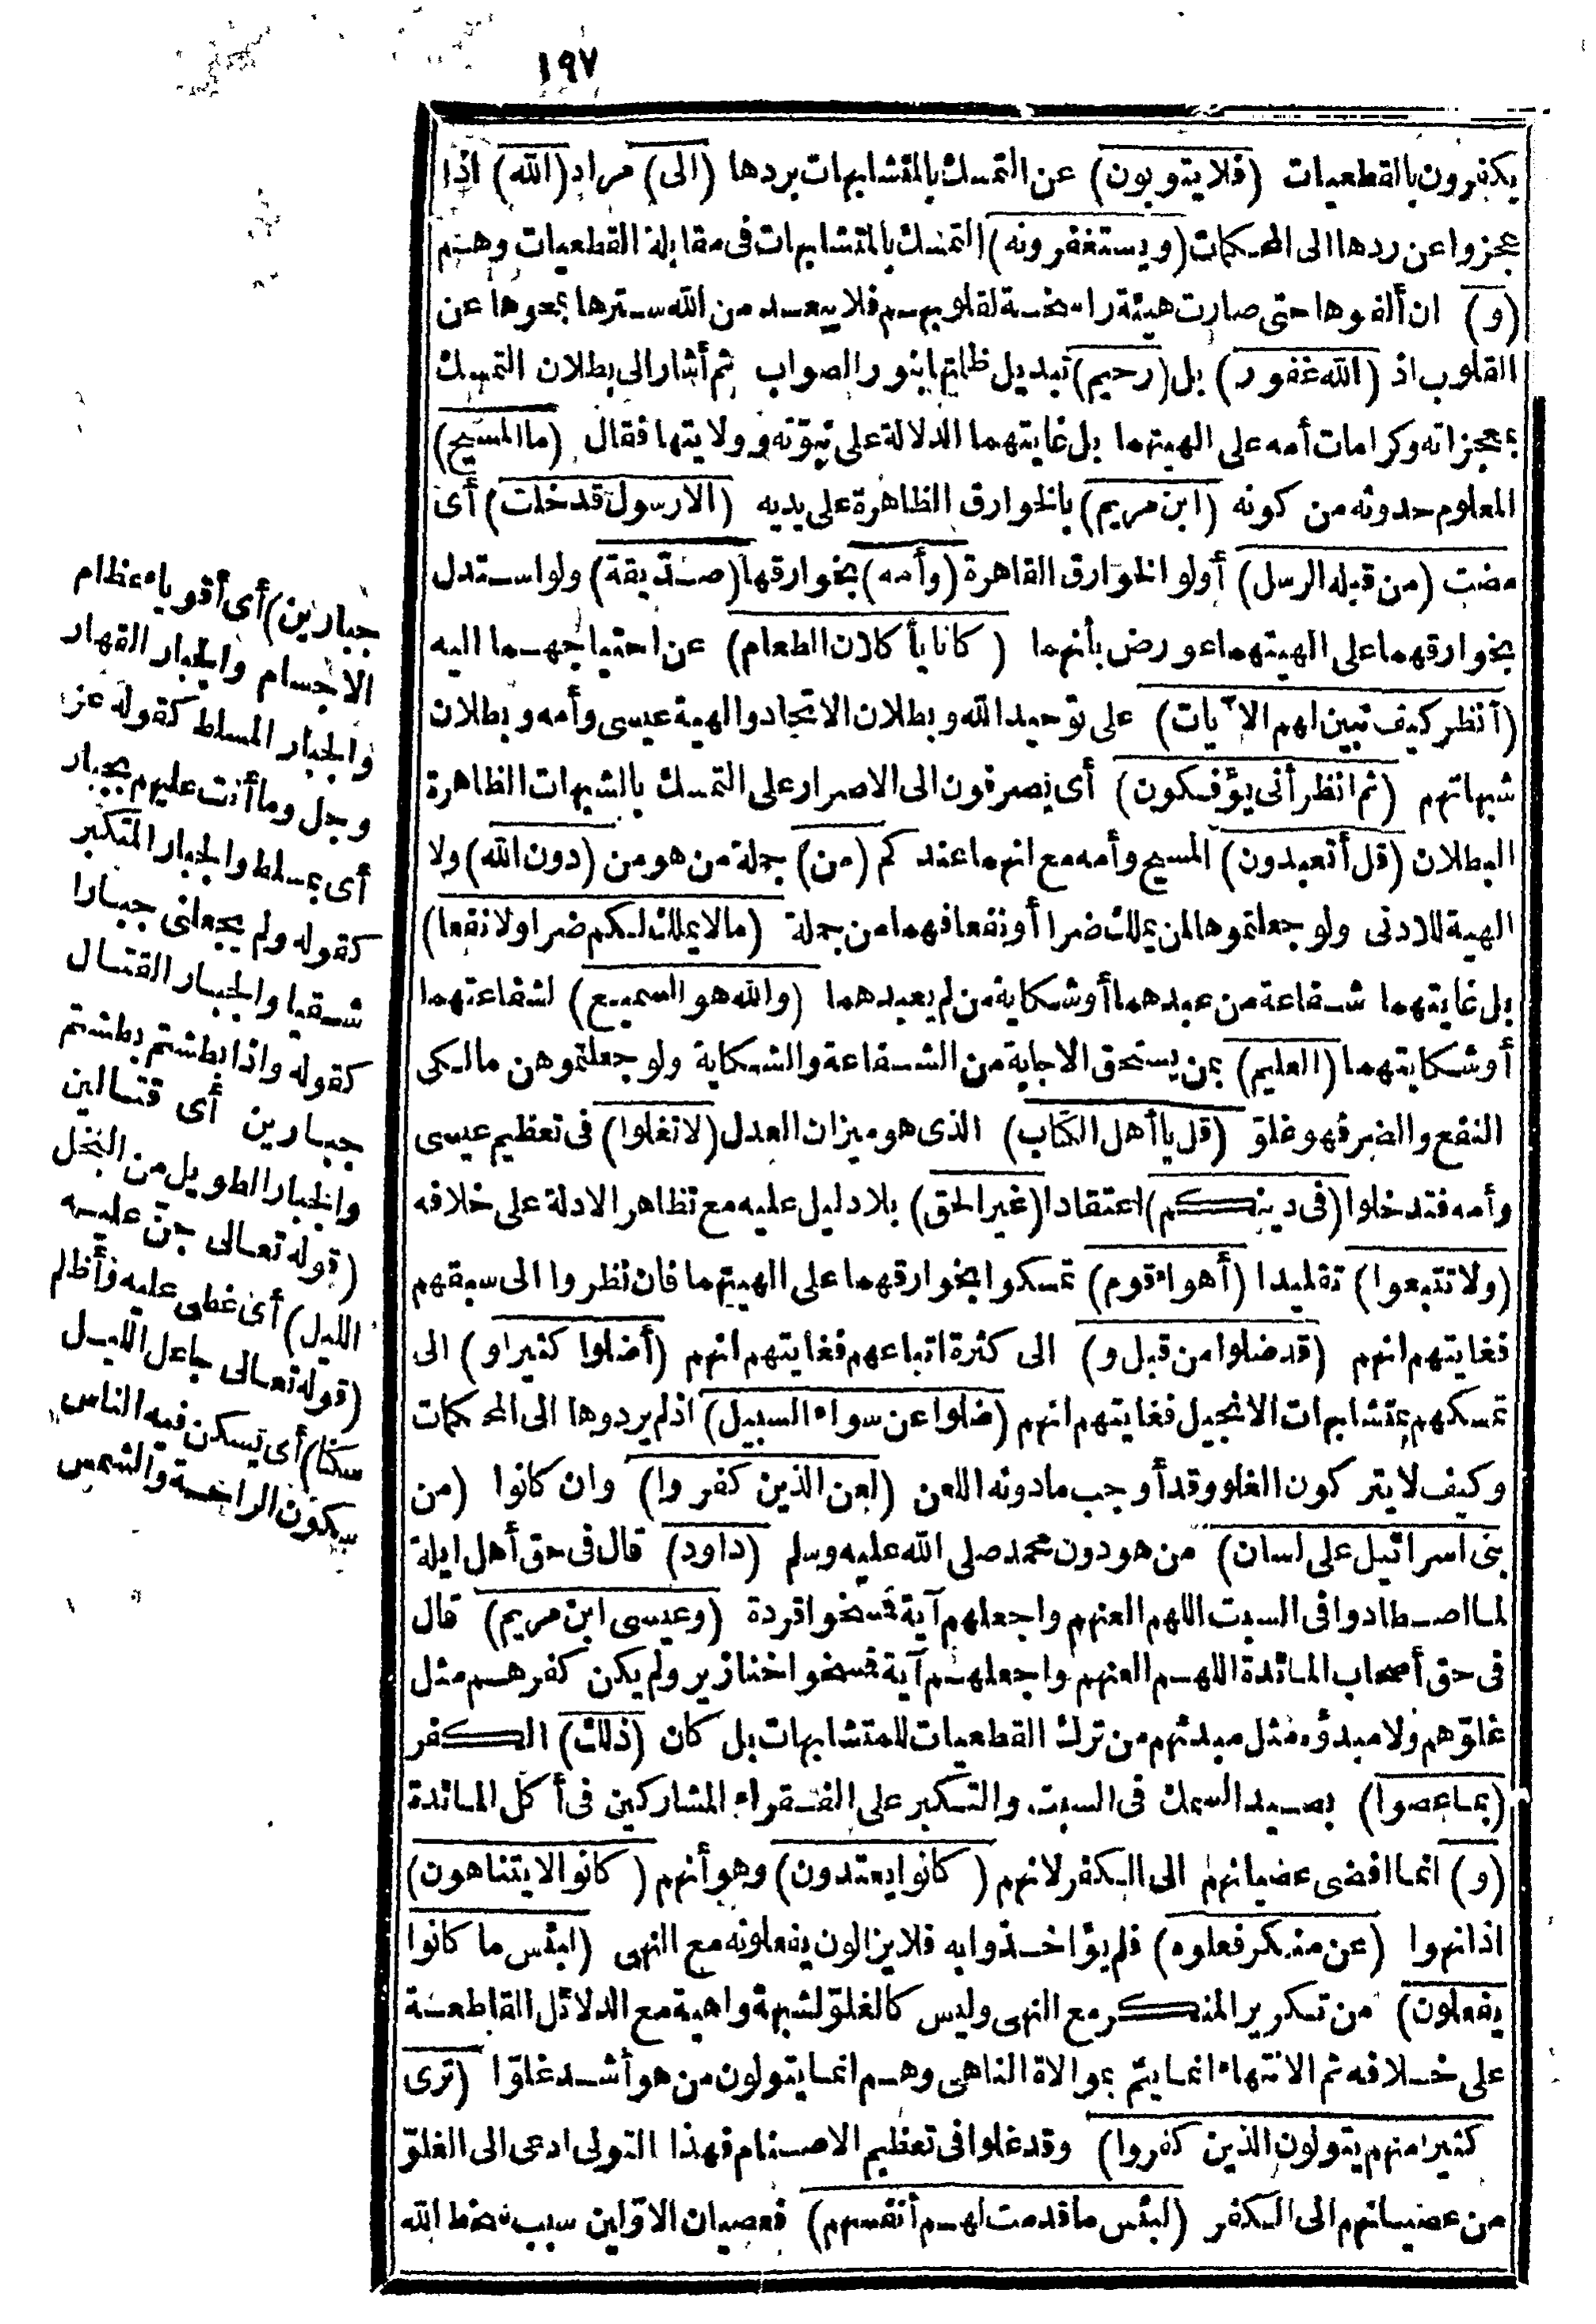 ١٩٧
يكفرون بالقطعيات (فلا يتوبون) عن التمسك بالمتشابهات بردها (الى) مراد (الله) اذا
عجزوا عن ردها الى المحكمات (ويستغفرونه) التمسك بالمتشابهات فى مقابلة القطعيات وهم
(و) ان ألفوها حتى صارت هيئة راسخة لقلوبهم فلا يبعد من الله سترها بمحوها عن
القلوب اذ (الله غفور) بل (رحيم) تبديل ظلماتها بنور الصواب ثم أشار الى بطلان التمسك
بمعجزاته وكرامات أمه على الهيتهما بل غايتهما الدلالة على نبوّته وولايتها فقال (ما المسيح)
المعلوم حدوثه من كونه (ابن مريم) بالخوارق الظاهرة على يديه (الا رسول قد خلت) أى
مضت (من قبله الرسل) أولو الخوارق القاهرة (وأمه) بخوارقها (صدّيقة) ولو استدل
بخوارقهما على الهيتهما عورض بأنهما (كانا يأكلان الطعام) عن احتياجهما اليه
(انظر كيف نبين لهم الآيات) على توحيد الله وبطلان الاتحاد والهية عيسى وأمه وبطلان
شبهاتهم (ثم انظر أنى يؤفكون) أى يصرفون الى الاصرار على التمسك بالشبهات الظاهرة
البطلان (قل أتعبدون) المسيح وأمه مع انهما عندكم (من) جملة من هو من (دون الله) ولا
الهية للادنى ولو جعلتموها لمن يملك ضرا أو نفعا فهما من جملة (ما لا يملك لكم ضرا ولا نفعا)
بل غايتهما شفاعة من عبدهما أو شكاية من لم يعبدهما (والله هو السميع) لشفاعتهما
أو شكايتهما (العليم) بمن يستحق الاجابة من الشفاعة والشكاية ولو جعلتموهن مالكى
النفع والضر فهو غلوّ (قل يا أهل الكتاب) الذى هو ميزان العدل (لا تغلوا) فى تعظيم عيسى
وأمه فتدخلوا (فى دينكم) اعتقادا (غير الحق) بلا دليل عليه مع تظاهر الادلة على خلافه
(ولا تتبعوا) تقليدا (أهواء قوم) تمسكوا بخوارقهما على الهيتهما فان نظروا الى سبقهم
فغايتهم انهم (قد ضلوا من قبل و) الى كثرة اتباعهم فغايتهم انهم (أضلوا كثيرا و) الى
تمسكهم بمتشابهات الانجيل فغايتهم انهم (ضلوا عن سواء السبيل) اذ لم يردوها الى المحكمات
وكيف لا يتركون الغلو وقد أوجب ما دونه اللعن (لعن الذين كفروا) وان كانوا (من
بنى اسرائيل على لسان) من هو دون محمد صلى الله عليه وسلم (داود) قال فى حق أهل ايلة
لما اصطادوا فى السبت اللهم العنهم واجعلهم آية فمسخوا قردة (وعيسى ابن مريم) قال
فى حق أصحاب المائدة اللهم العنهم واجعلهم آية فمسخوا خنازير ولم يكن كفرهم مثل
غلوّهم ولا مبدؤه مثل مبدئهم من ترك القطعيات للمتشابهات بل كان (ذلك) الكفر
(بما عصوا) بصيد السمك فى السبت والتكبر على الفقراء المشاركين فى أكل المائدة
(و) انما افضى عصيانهم الى الكفر لانهم (كانوا يعتدون) وهو أنهم (كانوا لا يتناهون)
اذا نهوا (عن منكر فعلوه) فلم يؤاخذوا به فلا يزالون يفعلونه مع النهى (لبئس ما كانوا
يفعلون) من تكرير المنكر مع النهى وليس كالغلوّ لشبهة واهية مع الدلائل القاطعة
على خلافه ثم الانتهاء انما يتم بموالاة الناهى وهم انما يتولون من هو أشد غلوّا (ترى
كثيرا منهم يتولون الذين كفروا) وقد غلوا فى تعظيم الاصنام فهذا التولى ادعى الى الغلوّ
من عصيانهم الى الكفر (لبئس ما قدمت لهم أنفسهم) فعصيان الاوّلين سبب سخط الله
جبارين) أى أقوياء عظام
الاجسام والجبار القهار
والجبار المسلط كقوله عز
وجل وما أنت عليهم بجبار
أى بمسلط والجبار المتكبر
كقوله ولم يجعلنى جبارا
شقيا والجبار القتال
كقوله واذا بطشتم بطشتم
جبارين أى قتالين
والجبار الطويل من النخل
(قوله تعالى جنّ عليه
الليل) أى غطى عليه وأظلم
(قوله تعالى جاعل الليل
سكنا) أى يسكن فيه الناس
سكون الراحة والشمس